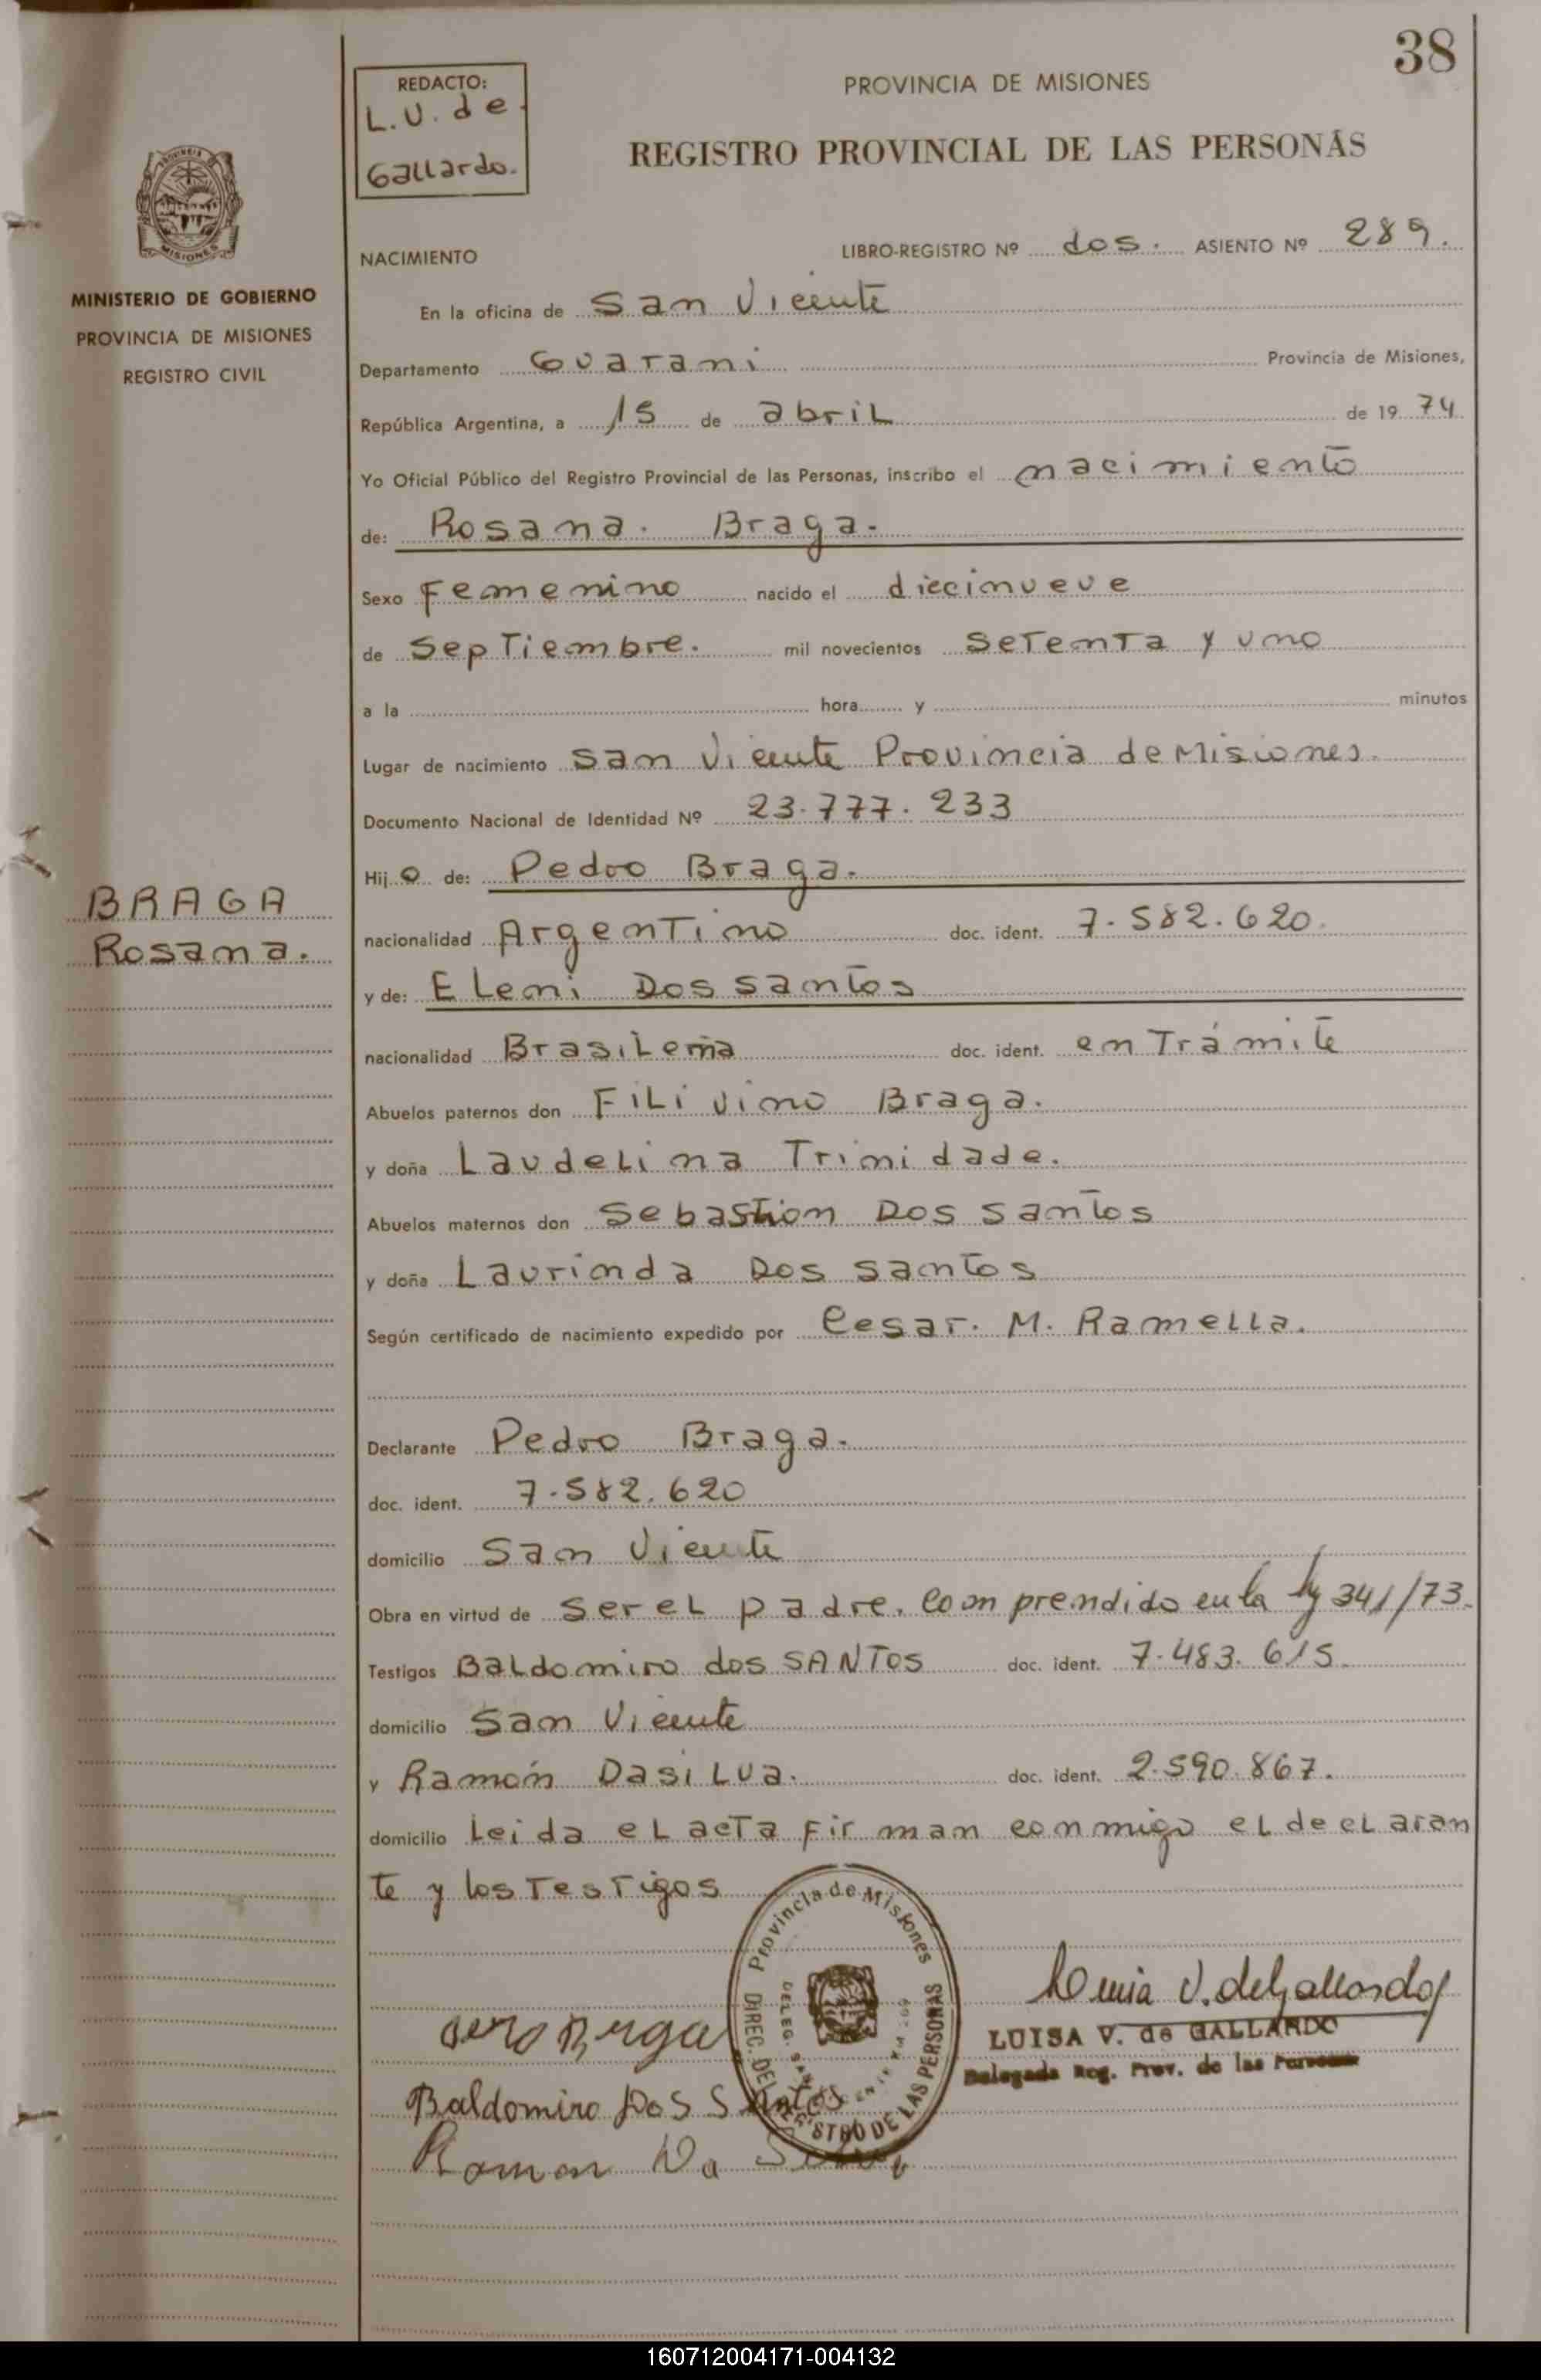 38
REDACTO:
L.V. de
Gallardo.
PROVINCIA DE MISIONES
REGISTRO PROVINCIAL DE LAS PERSONAS
PROVINCIA DE
MISIONES
MINISTERIO DE GOBIERNO
PROVINCIA DE MISIONES
REGISTRO CIVIL
NACIMIENTO
LIBRO-REGISTRO Nº dos. ASIENTO Nº 289.
En la oficina de San Vicente
Departamento Guarani Provincia de Misiones,
República Argentina, a 15 de abril de 1974
Yo Oficial Público del Registro Provincial de las Personas, inscribo el nacimiento
de: Rosana. Braga.
Sexo Femenino nacido el diecinueve
de Septiembre. mil novecientos Setenta y uno
a la hora y minutos
Lugar de nacimiento San Vicente Provincia de Misiones.
Documento Nacional de Identidad Nº 23.777.233
Hijo de: Pedro Braga.
BRAGA
Rosana.
nacionalidad Argentino doc. ident. 7.582.620.
y de: Eleni Dos santos
nacionalidad Brasileña doc. ident. en Trámite
Abuelos paternos don Filivino Braga.
y doña Laudelina Trinidade.
Abuelos maternos don Sebastion Dos santos
y doña Laurinda Dos santos
Según certificado de nacimiento expedido por Cesar. M. Ramella.
Declarante Pedro Braga.
doc. ident. 7.582.620
domicilio San Vicente
Obra en virtud de ser el padre. Comprendido en la ley 341/73.
Testigos Baldomiro dos SANTOS doc. ident. 7.483.615.
domicilio San Vicente
y Ramón Dasilva. doc. ident. 2.590.867.
domicilio Leida el acta firman conmigo el declaran
te y los Testigos
Provincia de Misiones
DIREC. DEL REGISTRO DE LAS PERSONAS
Luisa V. de Gallardo
LUISA V. de GALLARDO
Delegada Reg. Prov. de las Personas
Baldomiro Dos Santos
Ramon Da Silva
160712004171-004132